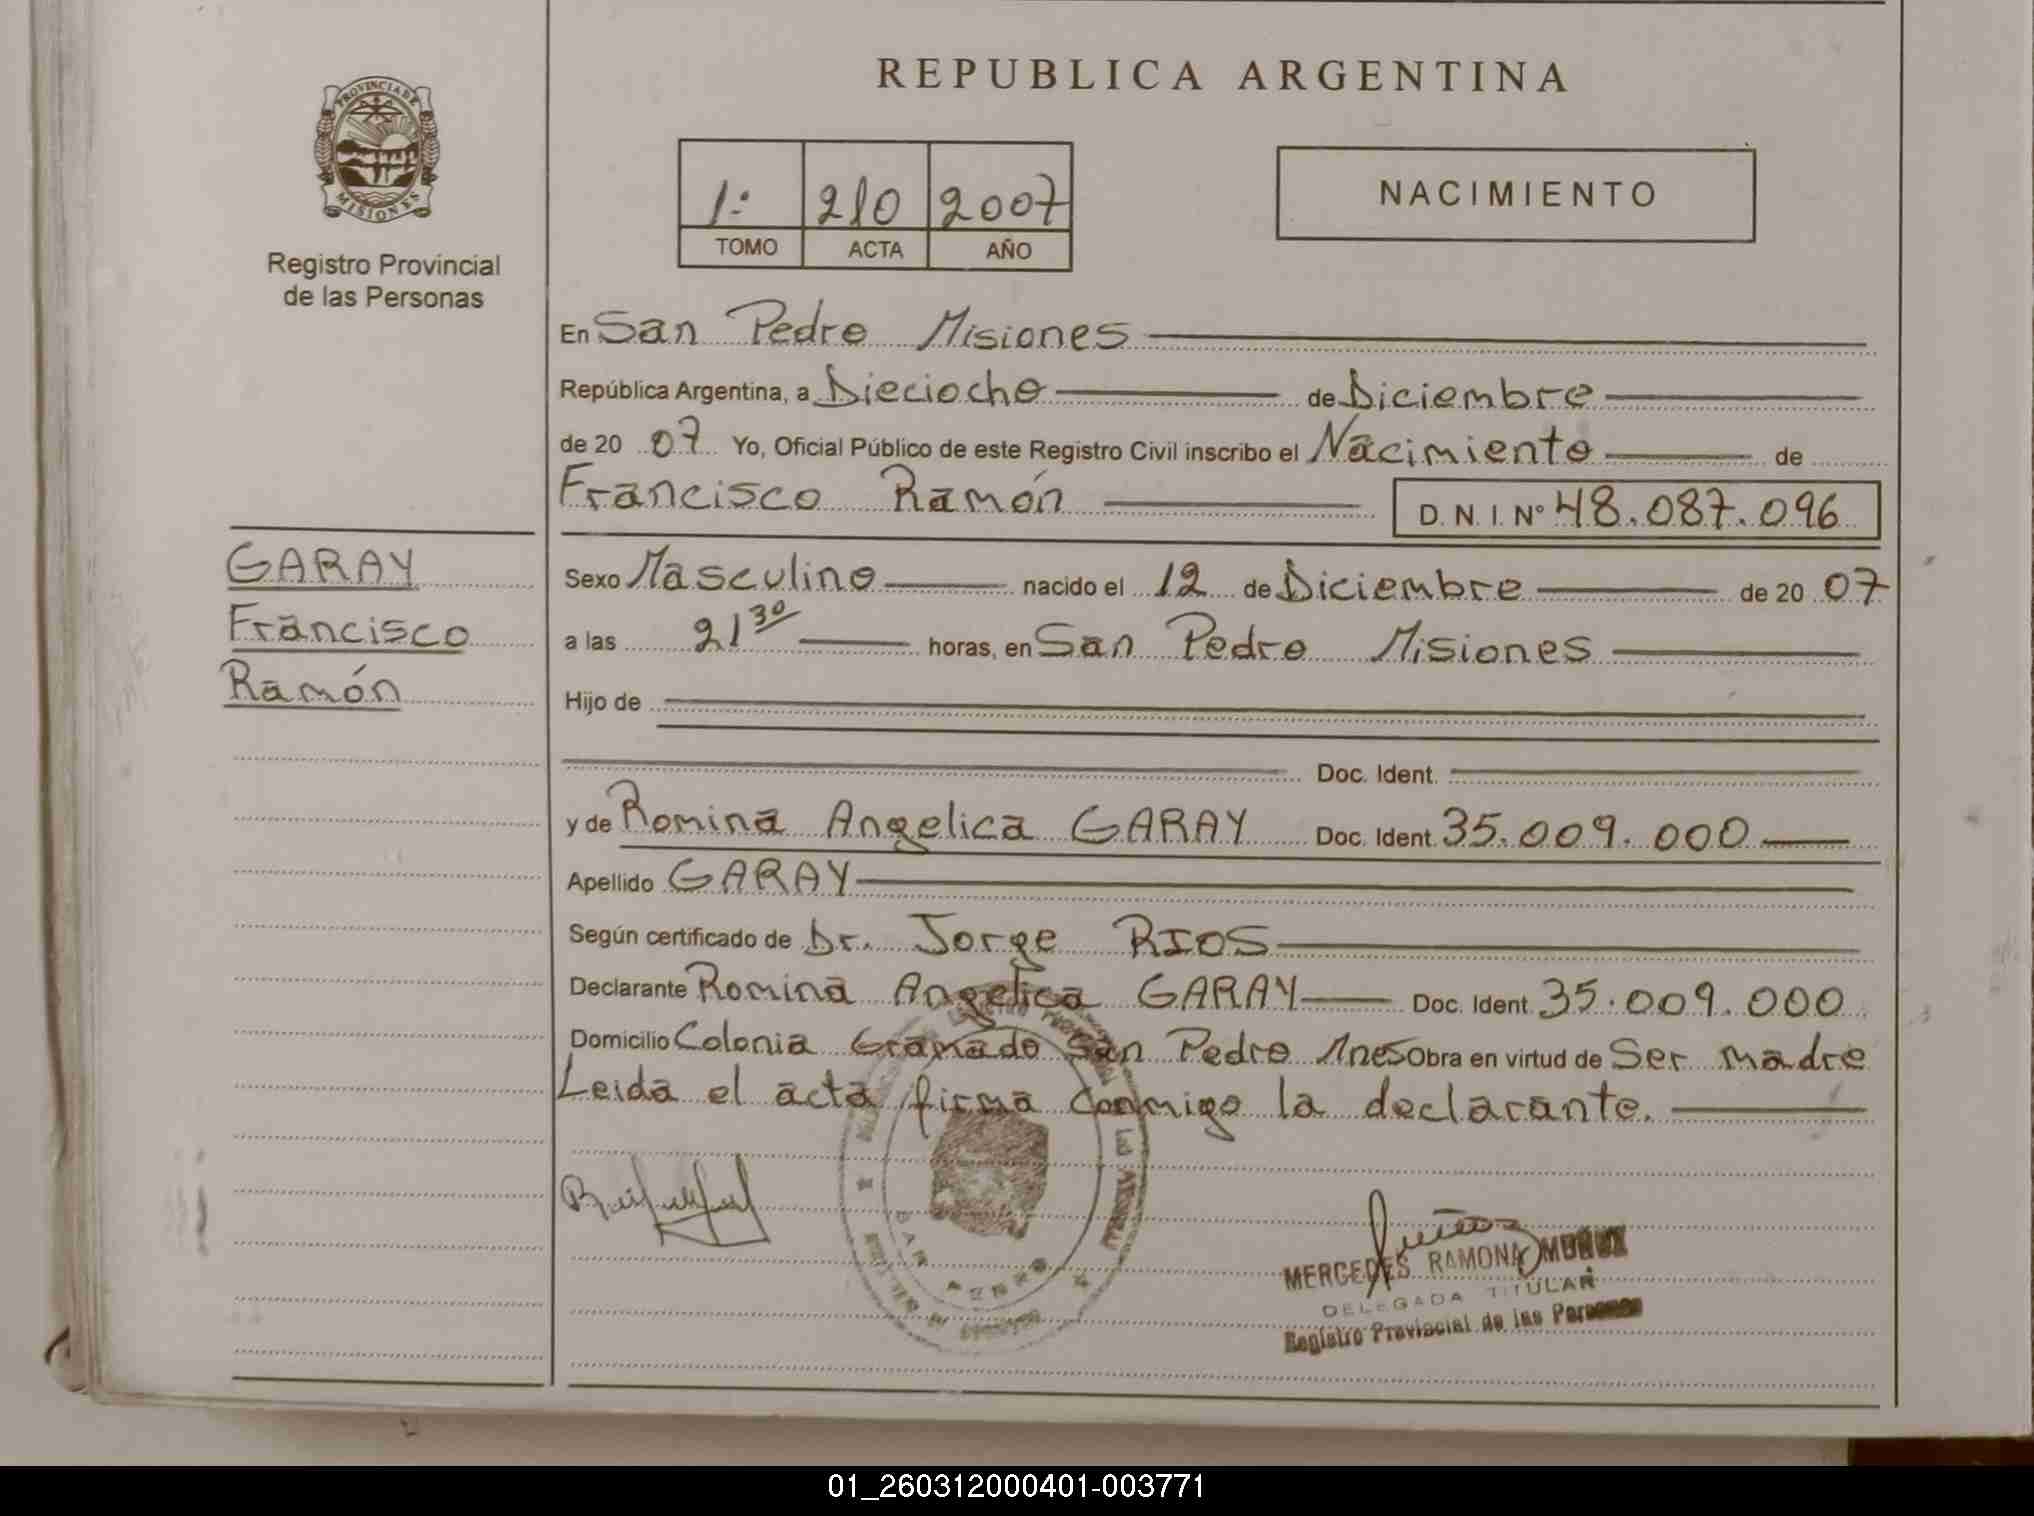 REPUBLICA ARGENTINA
PROVINCIA DE
MISIONES
Registro Provincial
de las Personas
1º 210 2007
TOMO ACTA AÑO
NACIMIENTO
En San Pedro Misiones
República Argentina, a Dieciocho de Diciembre
de 20 07 Yo, Oficial Público de este Registro Civil inscribo el Nacimiento de
Francisco Ramón D. N. I. Nº 48.087.096
GARAY
Francisco
Ramón
Sexo Masculino nacido el 12 de Diciembre de 20 07
a las 21 30 horas, en San Pedro Misiones
Hijo de
Doc. Ident.
y de Romina Angelica GARAY Doc. Ident. 35.009.000
Apellido GARAY
Según certificado de Dr. Jorge RIOS
Declarante Romina Angelica GARAY Doc. Ident. 35.009.000
Domicilio Colonia Gramado San Pedro Mnes Obra en virtud de Ser madre
Leida el acta firma conmigo la declarante.
MERCEDES RAMONA MUÑOZ
DELEGADA TITULAR
Registro Provincial de las Personas
01_260312000401-003771